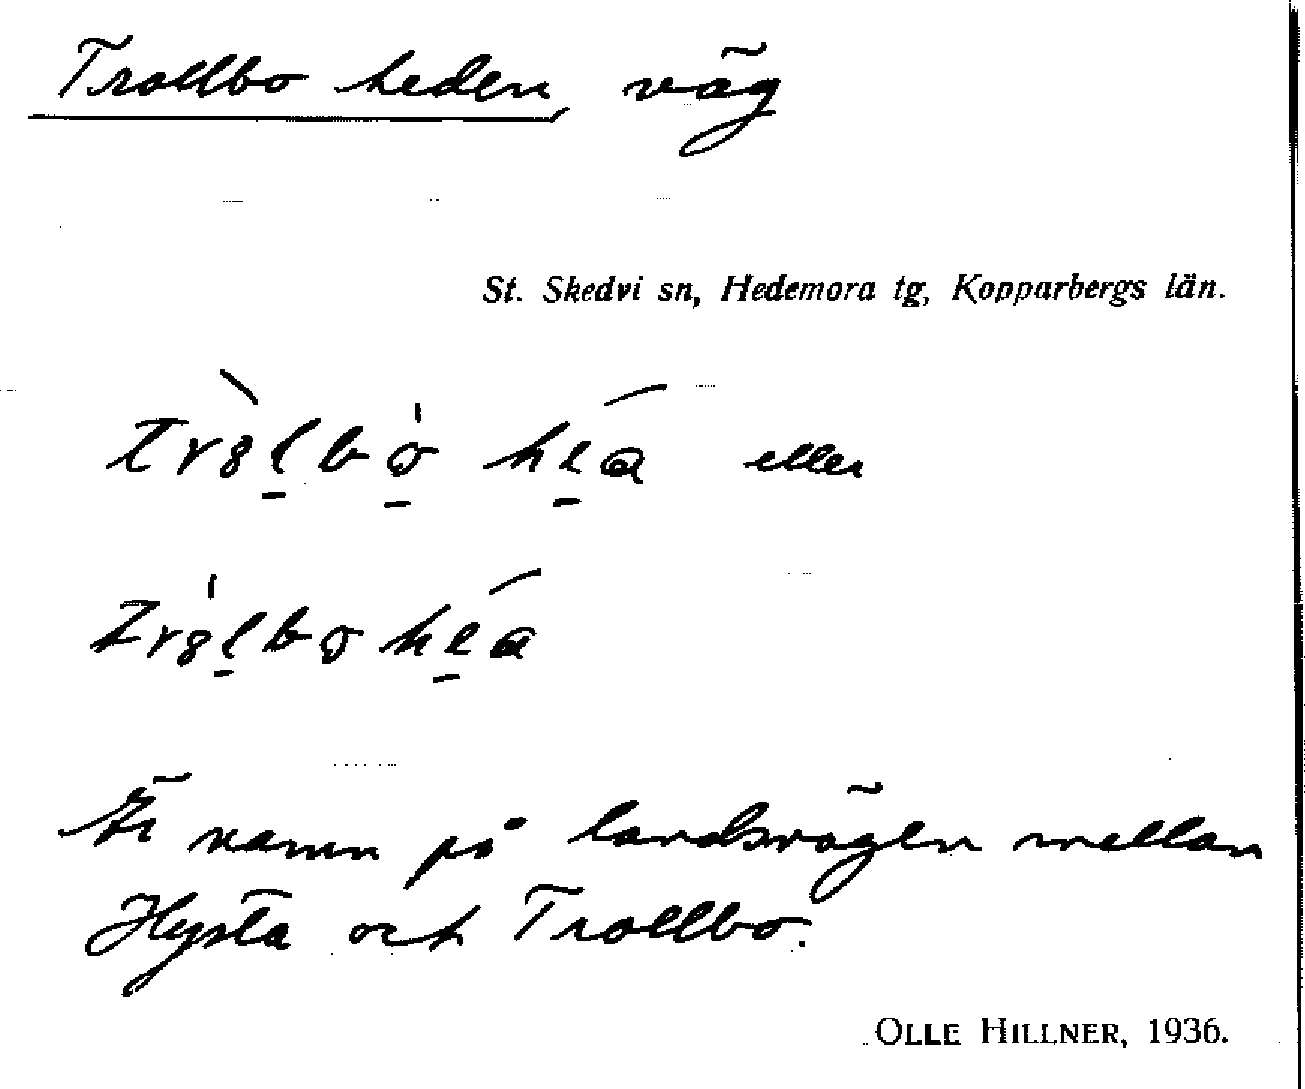 Trollbo heden, väg
St. Skedvi sn, Hedemora tg, Kopparbergs län.
eller
Är namn på landsvägen mellan
Hysta och Trollbo.
OLLE HILLNER, 1936.